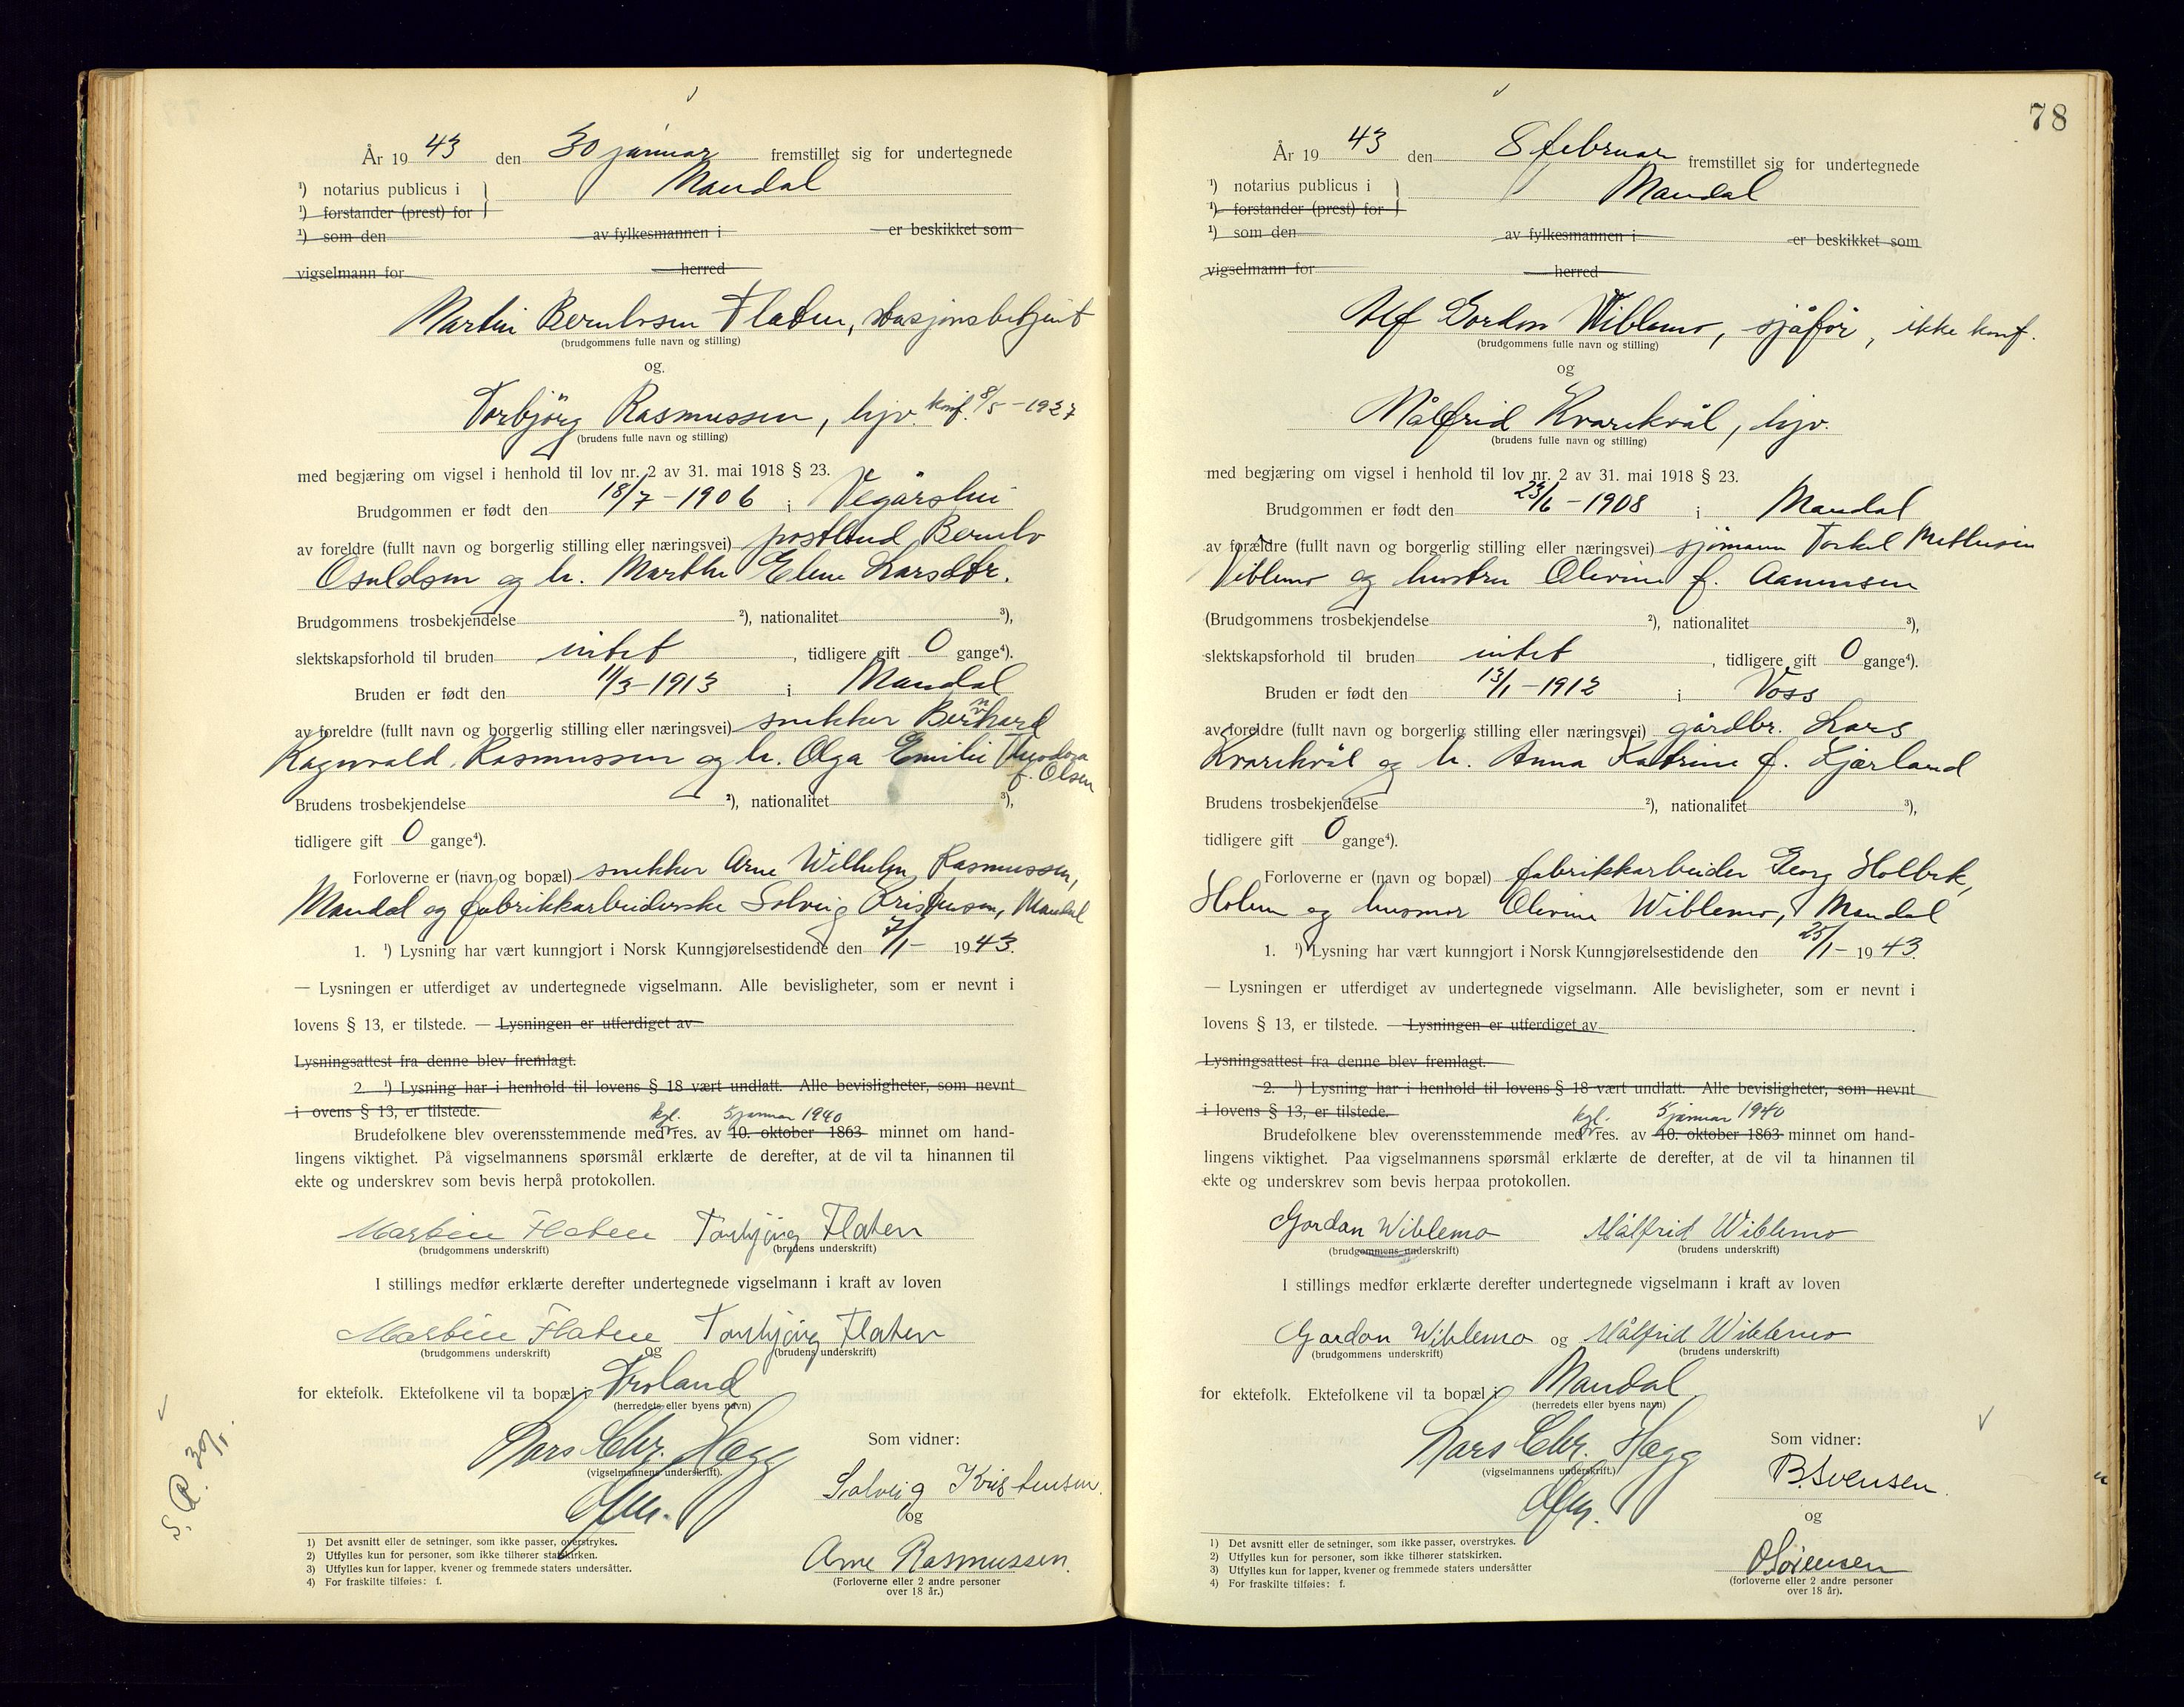 År 19 43 den 30 januar fremstillet sig for undertegnede
¹) notarius publicus i Mandal
¹) forstander (prest) for
¹) som den av fylkesmannen i er beskikket som
vigselmann for herred
Martin Berntsen Flaten, stasjonsbetjent
(brudgommens fulle navn og stilling)
og
Torbjörg Rasmussen, hjv. konf. 8/5 - 1927
(brudens fulle navn og stilling)
med begjæring om vigsel i henhold til lov nr. 2 av 31. mai 1918 § 23.
Brudgommen er født den 18/7 - 1906 i Vegårshei
av foreldre (fullt navn og borgerlig stilling eller næringsvei) postbud
Osuldsen og h. Marthe Elene Larsdtr.
Brudgommens trosbekjendelse ²), nationalitet ³),
slektskapsforhold til bruden intet, tidligere gift 0 gange⁴).
Bruden er født den 11/3 - 1913 i Mandal
av foreldre (fullt navn og borgerlig stilling eller næringsvei) snekker Bernhard
Ragnvald Rasmussen og h. Olga Emilie Theodora
f. Olsen
Brudens trosbekjendelse ²), nationalitet ³),
tidligere gift 0 gange⁴).
Forloverne er (navn og bopæl) snekker Arne Wilhelm Rasmussen,
Mandal og fabrikkarbeiderske Solveig Kristensen, Mandal
1. ¹) Lysning har vært kunngjort i Norsk Kunngjørelsestidende den 7/1 - 19 43.
— Lysningen er utferdiget av undertegnede vigselmann. Alle bevisligheter, som er nevnt i
lovens § 13, er tilstede. — Lysningen er utferdiget av
Lysningsattest fra denne blev fremlagt.
2. ¹) Lysning har i henhold til lovens § 18 vært undlatt. Alle bevisligheter, som nevnt
i ovens § 13, er tilstede.
kgl. 5 januar 1940
Brudefolkene blev overensstemmende med res. av 10. oktober 1863 minnet om hand-
lingens viktighet. På vigselmannens spørsmål erklærte de derefter, at de vil ta hinannen til
ekte og underskrev som bevis herpå protokollen.
Martin Flaten Torbjörg Flaten
(brudgommens underskrift) (brudens underskrift)
I stillings medfør erklærte derefter undertegnede vigselmann i kraft av loven
Martin Flaten Torbjörg Flaten
(brudgommens underskrift) og (brudens underskrift)
for ektefolk. Ektefolkene vil ta bopæl i Froland
(herredets eller byens navn)
Lars Chr. Hægg
(vigselmannens underskrift).
Som vidner:
Solveig Kristensen
og
Arne Rasmussen.
(Forloverne eller 2 andre personer
over 18 år.)
1) Det avsnitt eller de setninger, som ikke passer, overstrykes.
2) Utfylles kun for personer, som ikke tilhører statskirken.
3) Utfylles kun for lapper, kvener og fremmede staters undersåtter.
4) For fraskilte tilføies: f.
78
År 19 43 den 8 februar fremstillet sig for undertegnede
¹) notarius publicus i Mandal
¹) forstander (prest) for
¹) som den av fylkesmannen i er beskikket som
vigselmann for herred
Alf Gordon Wiblemo, sjåför, ikke konf.
(brudgommens fulle navn og stilling)
og
Målfrid Kvarekvål, hjv.
(brudens fulle navn og stilling)
med begjæring om vigsel i henhold til lov nr. 2 av 31. mai 1918 § 23.
Brudgommen er født den 23/6 - 1908 i Mandal
av forældre (fullt navn og borgerlig stilling eller næringsvei) sjömann Torkel
Viblemo og hustru Olevine f. Aanensen
(Brudgommens trosbekjendelse ²), nationalitet ³),
slektskapsforhold til bruden intet, tidligere gift 0 gange⁴).
Bruden er født den 13/1 - 1912 i Voss
av foreldre (fullt navn og borgerlig stilling eller næringsvei) gårdbr. Lars
Kvarekvål og h. Anna Katrine f. Gjærland
Brudens trosbekjendelse ²), nationalitet ³),
tidligere gift 0 gange⁴).
Forloverne er (navn og bopæl) fabrikkarbeider Georg Holbek,
Holum og husmor Olevine Wiblemo, Mandal
1. ¹) Lysning har vært kunngjort i Norsk Kunngjørelsestidende den 25/1 - 19 43.
— Lysningen er utferdiget av undertegnede vigselmann. Alle bevisligheter, som er nevnt i
lovens § 13, er tilstede. — Lysningen er utferdiget av
Lysningsattest fra denne blev fremlagt.
2. ¹) Lysning har i henhold til lovens § 18 vært undlatt. Alle bevisligheter, som nevnt
i lovens § 13, er tilstede.
kgl. 5 januar 1940
Brudefolkene blev overensstemmende med res. av 10. oktober 1863 minnet om hand-
lingens viktighet. Paa vigselmannens spørsmål erklærte de derefter, at de vil ta hinannen til
ekte og underskrev som bevis herpaa protokollen.
Gordon Wiblemo Målfrid Wiblemo
(brudgommens underskrift) (brudens underskrift)
I stillings medfør erklærte derefter undertegnede vigselmann i kraft av loven
Gordon Wiblemo og Målfrid Wiblemo
(brudgommens underskrift) (brudens underskrift)
for ektefolk. Ektefolkene vil ta bopæl i Mandal
(herredets eller byens navn)
Lars Chr. Hægg
(vigselmannens underskrift.)
Som vidner:
B. Svensen
og
O Sörensen
(forloverne eller 2 andre personer
over 18 år).
1) Det avsnitt eller de setninger, som ikke passer, overstrykes.
2) Utfylles kun for personer, som ikke tilhører statskirken.
3) Utfylles kun for lapper, kvener og fremmede staters undersåtter
4) For fraskilte tilføies: f.